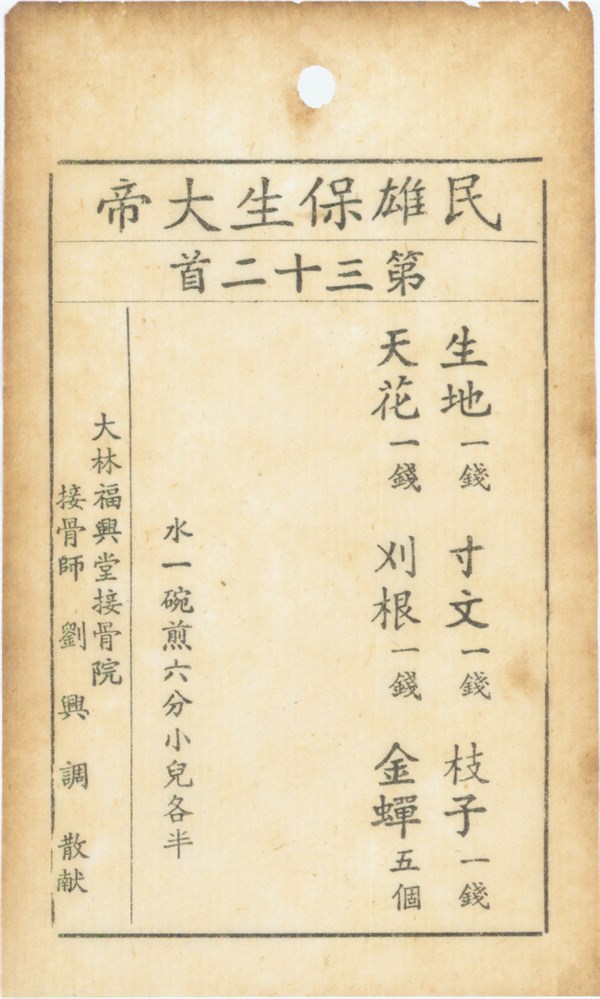 民雄保生大帝
第三十二首
生地一錢 寸文一錢 枝子一錢
天花一錢 刈根一錢 金蟬五個
水一碗煎六分小兒各半
大林福興堂接骨院
接骨師 劉興調 散献